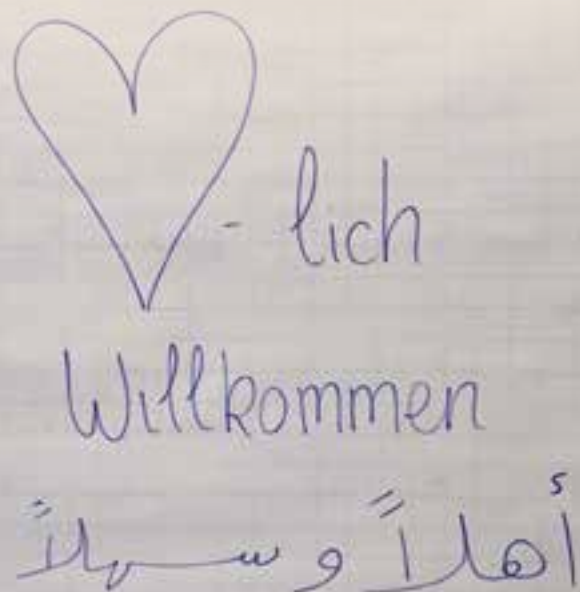 - lich
Willkommen
أهلاً و سهلاً